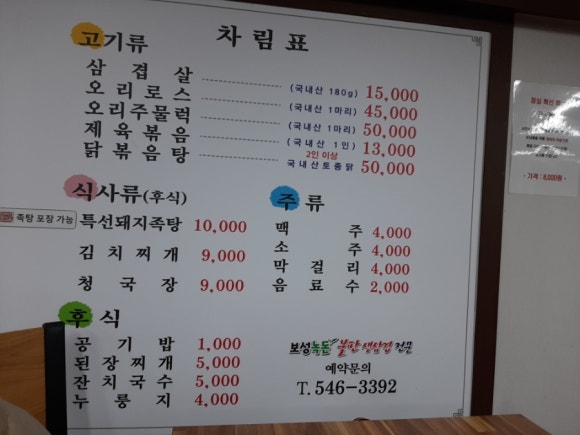 차림표
고기류
삼겹살 (국내산 180g) 15,000
오리로스 (국내산 1마리) 45,000
오리주물럭 (국내산 1마리) 50,000
제육볶음 (국내산 1인) 13,000
2인 이상
닭볶음탕 국내산토종닭 50,000
식사류(후식)
족탕 포장 가능
특선돼지족탕 10,000
김치찌개 9,000
청국장 9,000
주류
맥주 4,000
소주 4,000
막걸리 4,000
음료수 2,000
후식
공기밥 1,000
된장찌개 5,000
잔치국수 5,000
누룽지 4,000
보성녹돈 불판 생삼겹 전문
예약문의
T. 546-3392
점심 특선
- 가격 : 8,000원 -